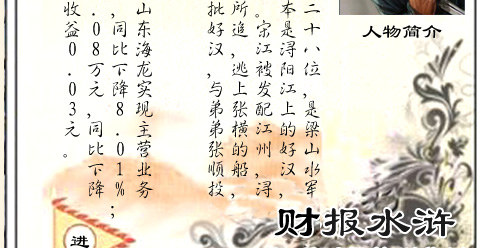 人物简介
二十八位，是梁山水军
本是浔阳江上的好汉，
。宋江被发配江州，浔
所追，逃上张横的船，
批好汉，与弟弟张顺投
山东海龙实现主营业务
，同比下降8.01%；
.08万元，同比下降
收益0.03元。
财报水浒
进